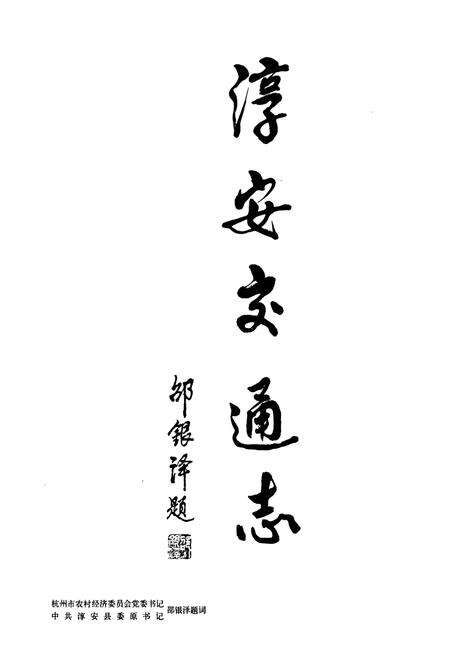 淳安交通志
邵银译题
杭州市农村经济委员会党委书记
中共淳安县委原书记
邵银泽题词